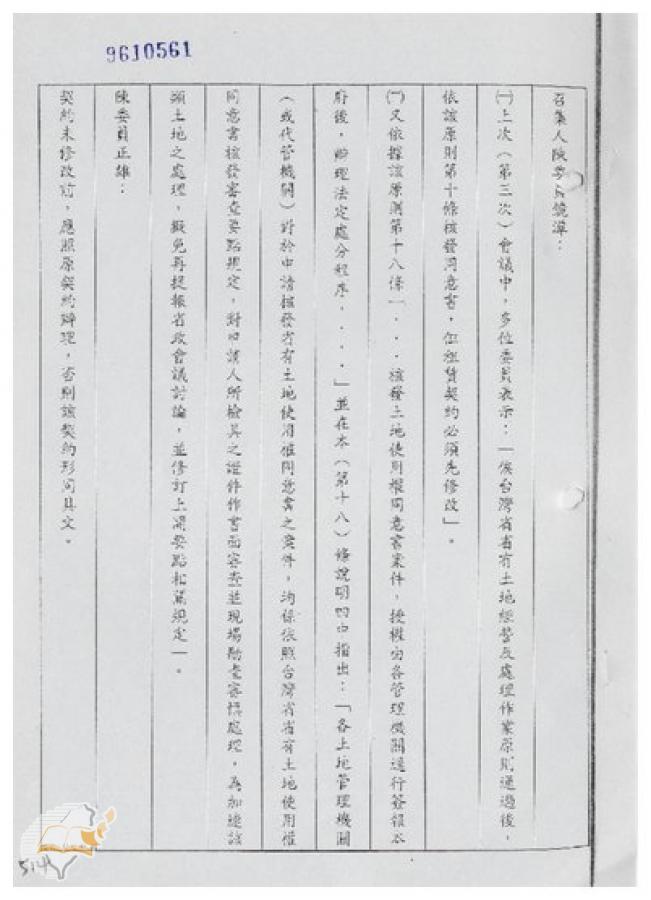 9610561
召集人陳委員鏡潭：
㈠上次（第三次）會議中，多位委員表示：「俟台灣省省有土地經營及處理作業原則通過後，
依該原則第十條核發同意書，但租賃契約必須先修改」。
㈡又依據該原則第十八條「．．．核發土地使用權同意書案件，授權由各管理機關逕行簽報本
府後，辦理法定處分程序．．．」並在本（第十八）條說明四中指出：「各土地管理機關
（或代管機關）對於申請核發省有土地使用權同意書之案件，均係依照台灣省省有土地使用權
同意書核發審查要點規定，對申請人所檢具之證件作書面審查並現場勘查審慎處理，為加速該
類土地之處理，擬免再提報省政會議討論，並修訂上開要點相關規定」。
陳委員正雄：
契約未修改前，應照原契約辦理，否則該契約形同具文。
514